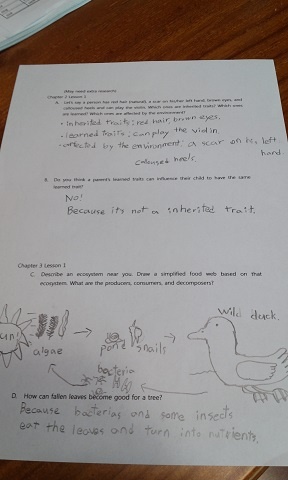 (May need extra research)
Chapter 2 Lesson 1
A. Let's say a person has red hair (natural), a scar on his/her left hand, brown eyes, and
calloused heels and can play the violin. Which ones are inherited traits? Which ones
are learned? Which ones are affected by the environment?
• Inherited traits; red hair, brown eyes.
• learned traits; can play the violin.
• affected by the environment; a scar on his left
hand.
calloused heels.
B. Do you think a parent's learned traits can influence their child to have the same
learned trait?
No!
Because its not a inherited trait.
Chapter 3 Lesson 1
C. Describe an ecosystem near you. Draw a simplified food web based on that
ecosystem. What are the producers, consumers, and decomposers?
Wild duck.
sun
algae
pond snails
bacteria
D. How can fallen leaves become good for a tree?
Because bacterias and some insects
eat the leaves and turn into nutrients.